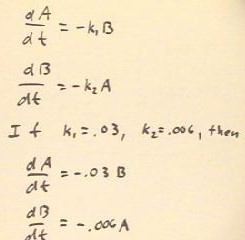 dA/dt = -k₁B
dB/dt = -k₂A
If k₁=.03, k₂=.006, then
dA/dt = -.03 B
dB/dt = -.006A